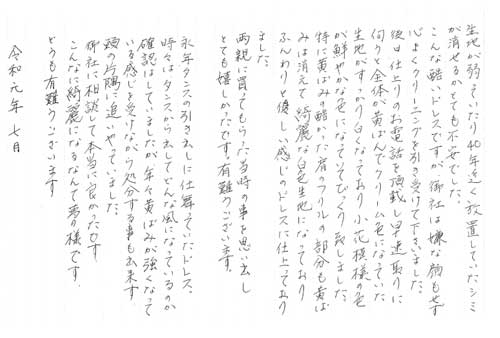 生地が弱っていたり40年近く放置していたシミ
が消せるかとても不安でした。
こんな酷いドレスですが御社は嫌な顔もせず
心よくクリーニングを引き受けて下さいました。
後日仕上りのお電話を頂戴し早速取りに
伺うと全体が黄ばんでクリーム色になっていた
生地がすっかり白くなっており小花模様の色
が鮮やかな色になっててびっくり致しました。
特に黄ばみの酷かった肩のフリルの部分も黄ば
みは消えて綺麗な白色生地になっており
ふんわりと優しい感じのドレスに仕上っており
ました。
両親に買ってもらった当時の事を思い出し
とても嬉しかったです。有難うございます。
永年タンスの引き出しに仕舞っていたドレス、
時々はタンスから出してどんな風になっているのか
確認はしていましたが年々黄ばみが強くなって
いる感じを受けながら処分する事も出来ず
頭の片隅に追いやっていました。
御社に相談して本当に良かったです
こんなに綺麗になるなんて夢の様です。
どうも有難うございます。
令和元年 七月